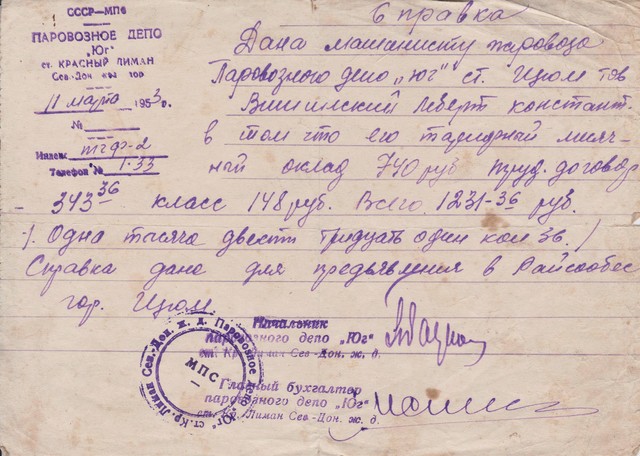 СССР—МПС
ПАРОВОЗНОЕ ДЕПО
"Юг"
ст. КРАСНЫЙ ЛИМАН
Сев-Дон
11 марта 1953 г.
№
Индекс тчдг-2
Телефон № 1-33
Справка
Дана машинисту паровоза
Паровозного депо „Юг" ст. Изюм тов
Константа
в том что его тарифный месяч-
ный оклад 740 руб труд. договор
343 36 класс 148 руб. Всего 1231-36 руб.
/. Одна тысяча двести тридцать один коп 36. /
Справка дана для предьявления в Райсообес
гор. Изюм
Начальник
паровозного депо „Юг"
ст. Кр. Лиман Сев-Дон. ж. д.
Главный бухгалтер
паровозного депо „Юг"
ст. Кр. Лиман Сев-Дон. ж. д.
Паровозное депо "Юг" ст. Кр. Лиман Сев.-Дон. ж. д.
МПС